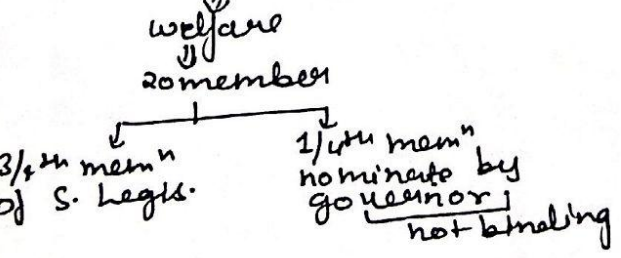 welfare
20 member
3/4th memⁿ
of S. Legis.
1/4th memⁿ
nominate by
governor
not binding